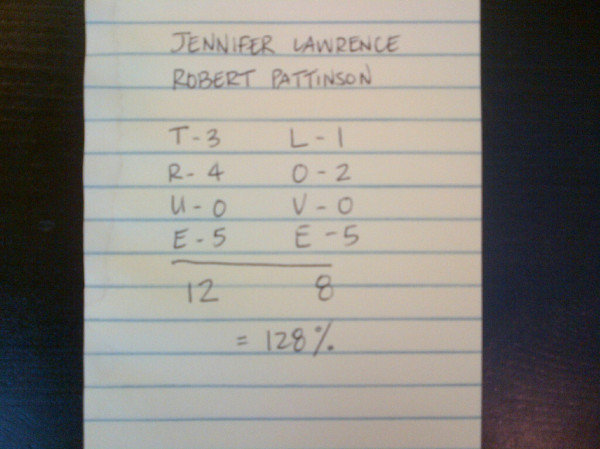 JENNIFER LAWRENCE
ROBERT PATTINSON
T-3 L-1
R-4 O-2
U-0 V-0
E-5 E-5
12 8
= 128%